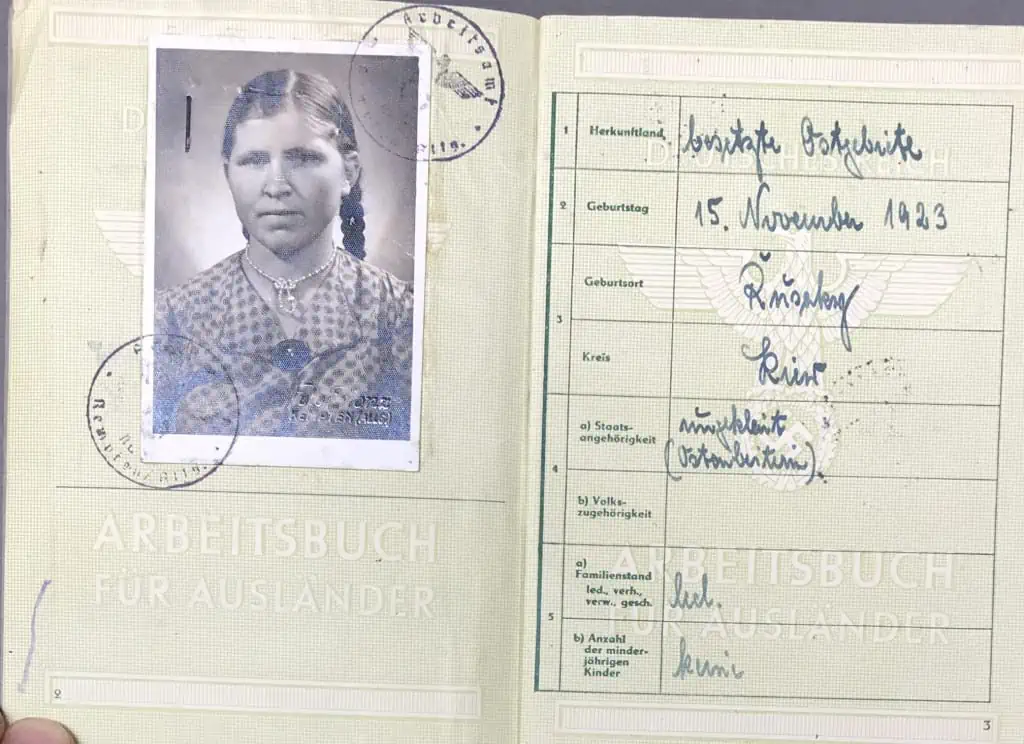 Arbeitsamt
Kempten/Allg.
ARBEITSBUCH
FÜR AUSLÄNDER
2
DEUTSCHES REICH
1 Herkunftland besetzte Ostgebiete
2 Geburtstag 15. November 1923
3 Geburtsort
Kreis Kiew
4 a) Staats-
angehörigkeit ungeklärt
(Ostarbeiterin)
b) Volks-
zugehörigkeit
5 a)
Familienstand
led., verh.,
verw., gesch. led.
b) Anzahl
der minder-
jährigen
Kinder keine
ARBEITSBUCH
FÜR AUSLÄNDER
3